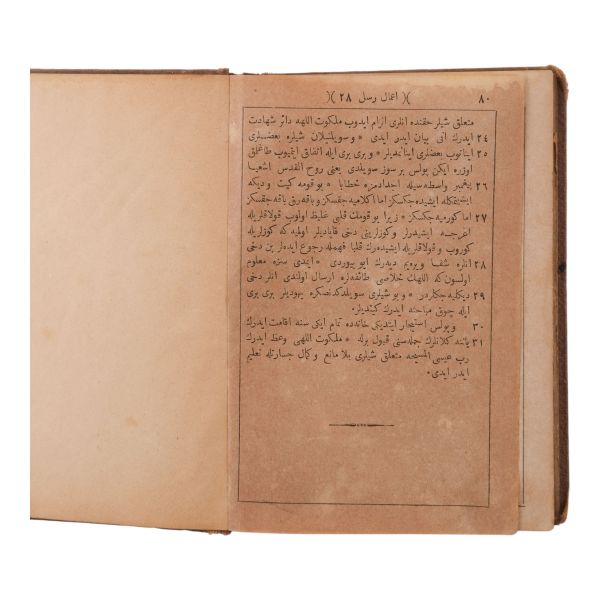 ٨٠ )( اعمال رسل ٢٨ )(
متعلق شیلر حقنده انلری الزام ایدوب ملکوت اللهه دائر شهادت
٢٤ ایدرك انی بیان ایدر ایدی * و سویلنیلان شیلره بعضیلری
٢٥ اینانوب بعضلری اینانمدیلر * و بری بری ایله اتفاق ایتمیوب طاغلمق
اوزره ایکن پولس بر سوز سویلدی یعنی روح القدس اشعیا
٢٦ پیغمبر واسطه‌سیله اجدادمزه خطابا * بو قومه کیت و دیکه
ایشیتمکله ایشیده‌جکسکز اما اکلامیه‌جقسکز و باقه‌رق باقه‌جقسکز
٢٧ اما کورمیه‌جکسکز * زیرا بو قومك قلبی غلیظ اولوب قولاقلریله
اغرجه ایشیدرلر و کوزلرینی دخی قاپادیلر اولمیه که کوزلریله
کوروب و قولاقلریله ایشیده‌رك قلبا فهمله رجوع ایده‌لر بن دخی
٢٨ انلره شفا ویره‌یم دیه‌رك ایو بیوردی * ایمدی سزه معلوم
اولسون که اللهك خلاصی طائفه‌لره ارسال اولندی انلر دخی
٢٩ دیکلیه‌جکلردر * و بو شیلری سویلدکدنصکره یهودیلر بری بری
ایله چوق مباحثه ایدرك کیتدیلر.
٣٠ و پولس استیجار ایتدیکی خانه‌ده تمام ایکی سنه اقامت ایدرك
٣١ یاننه کلانلرك جمله‌سنی قبول برله * ملکوت اللهی وعظ ایدرك
رب عیسی المسیحه متعلق شیلری بلا مانع و کمال جسارتله تعلیم
ایدر ایدی *